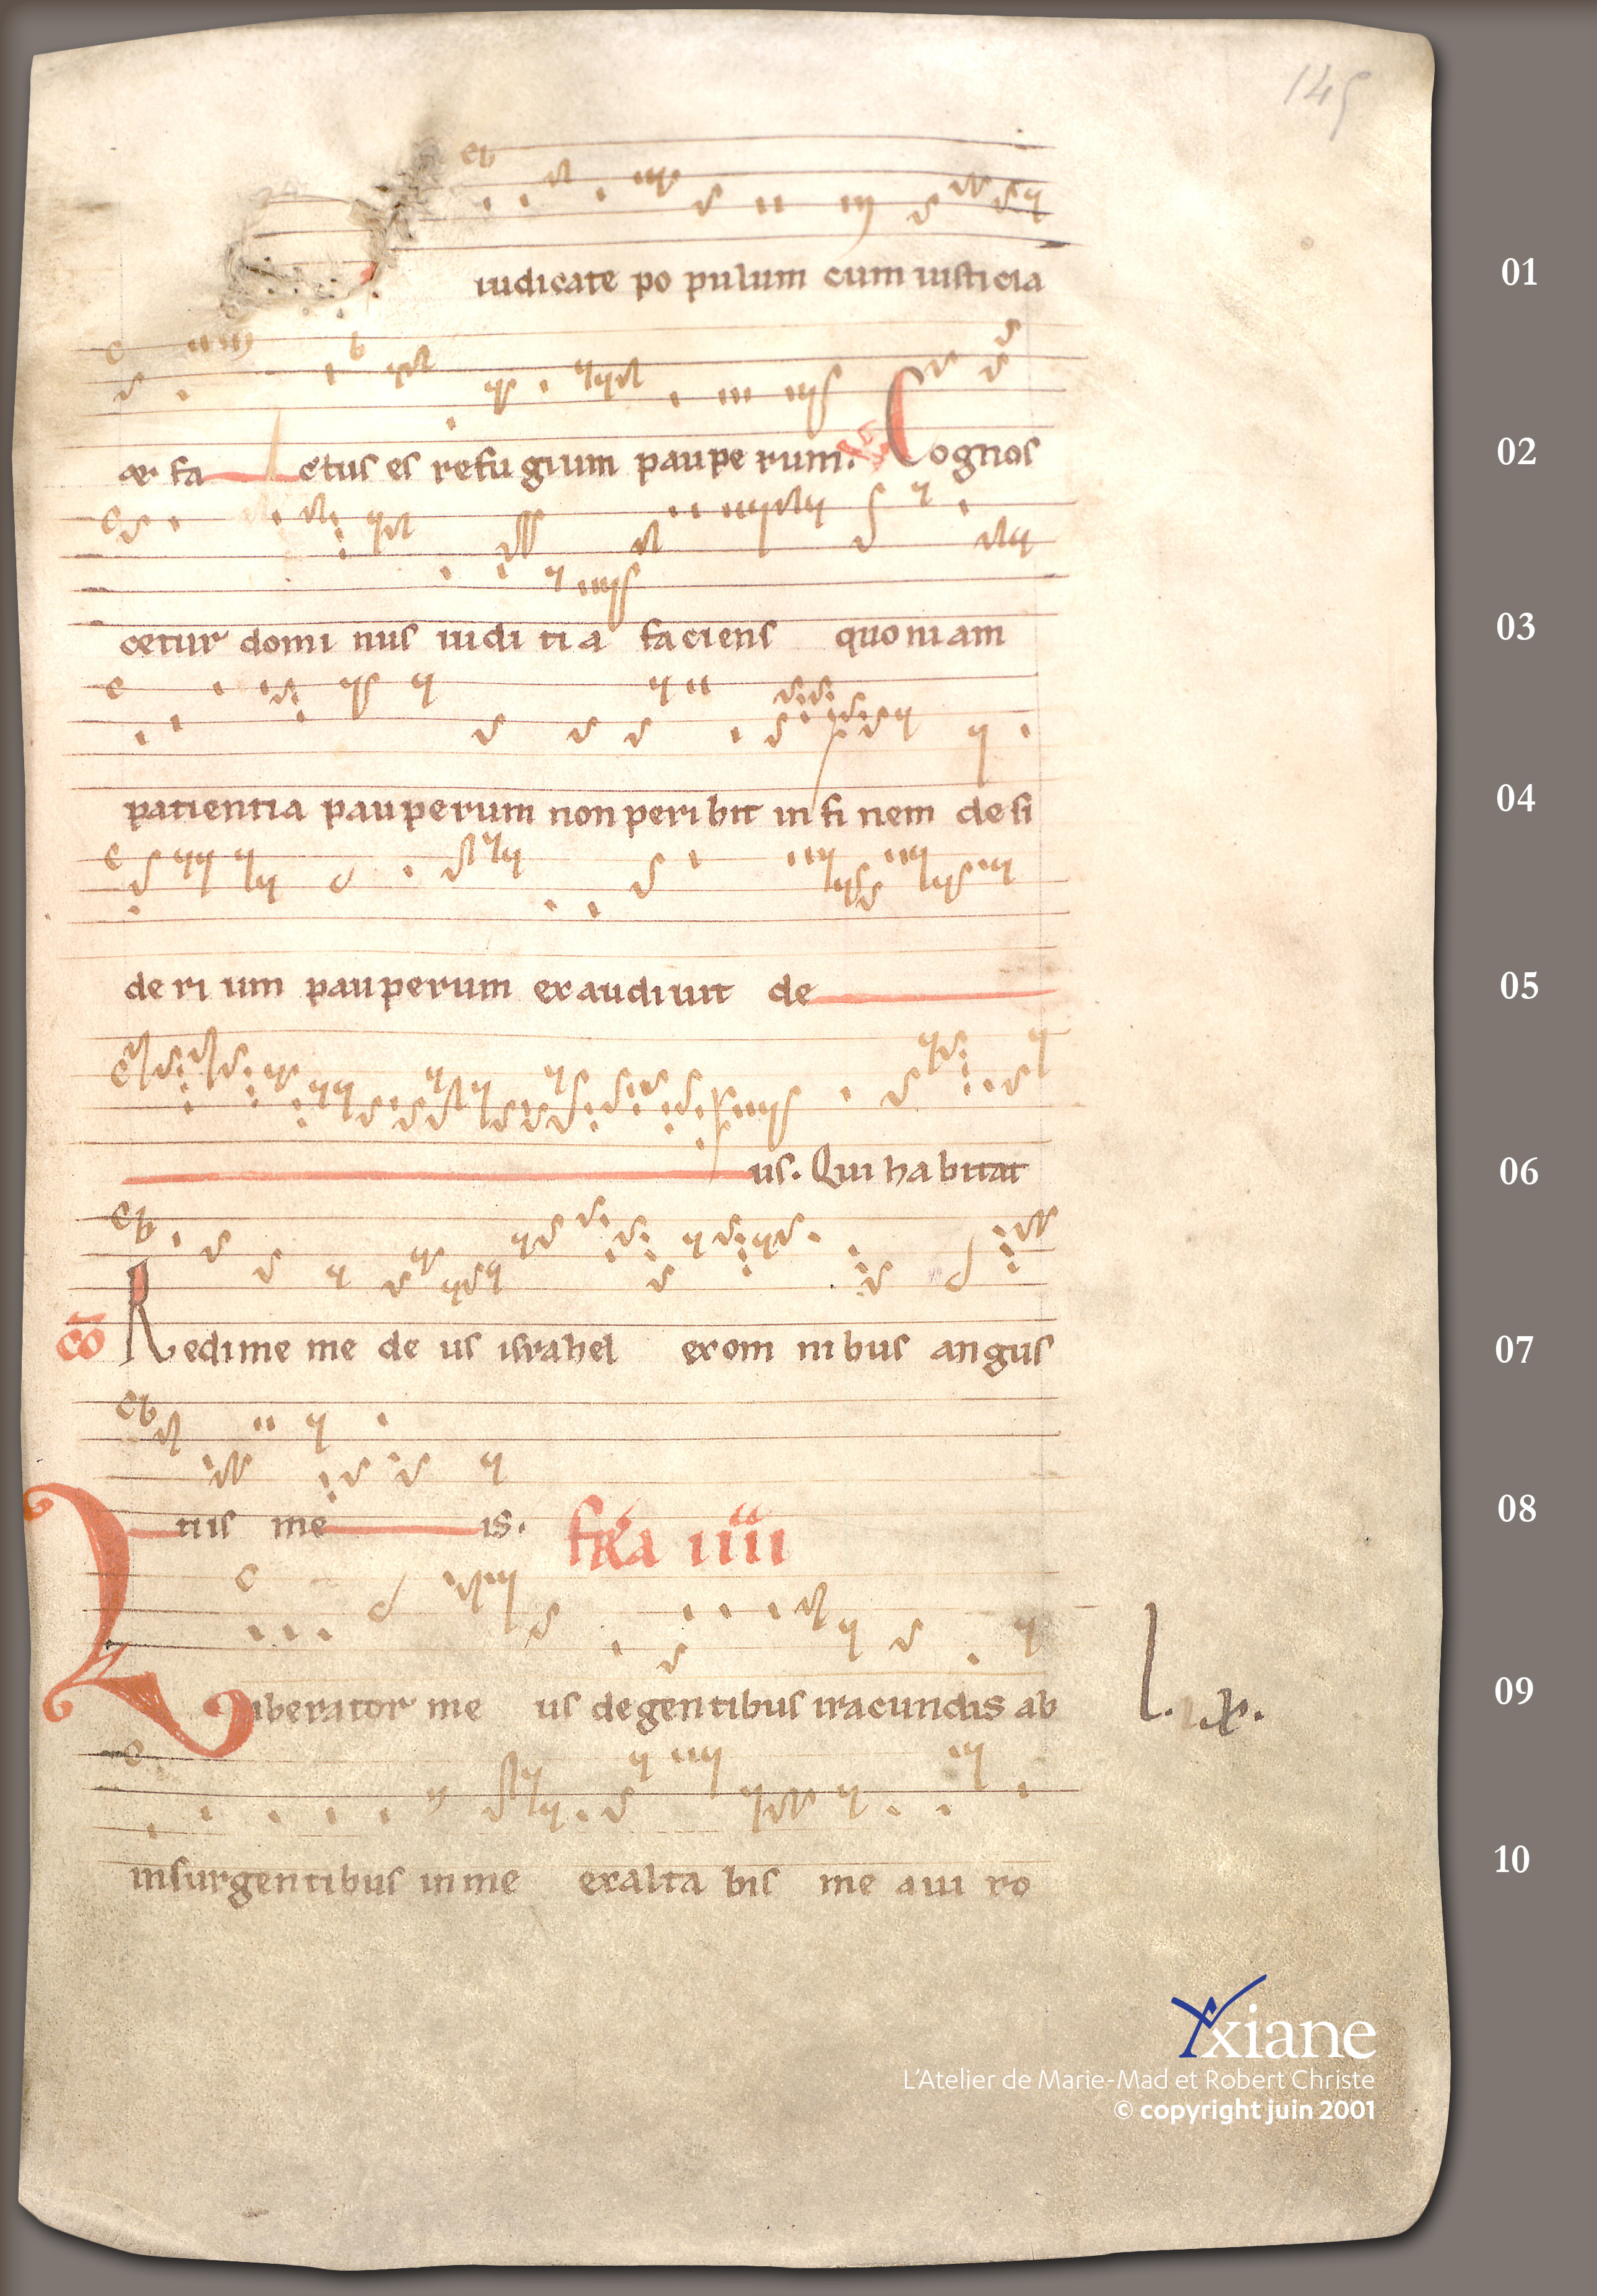 145
iudicate po pulum cum iusticia 01
et fa ctus es refu gium paupe rum. Cognos 02
cetur domi nus iudi ti a faciens quoniam 03
patientia pauperum non peribit in fi nem desi 04
de ri um pauperum exaudiuit de 05
us. Qui habitat 06
cō Redime me de us israhel ex om nibus angus 07
tiis me is. fr̄a iiii 08
Liberator me us de gentibus iracundis ab l. ix. 09
insurgentibus in me exalta bis me a ui ro 10
Yxiane
L'Atelier de Marie-Mad et Robert Christe
© copyright juin 2001